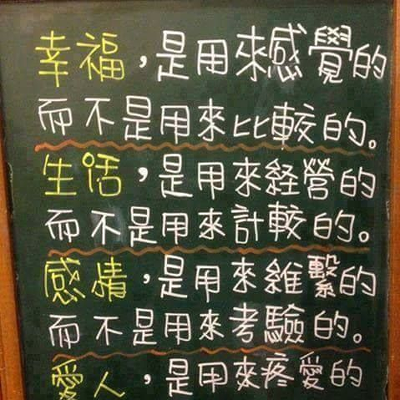 幸福，是用來感覺的
而不是用來比較的。
生活，是用來経營的
而不是用來計較的。
感情，是用來維繫的
而不是用來考驗的。
愛人，是用來疼愛的